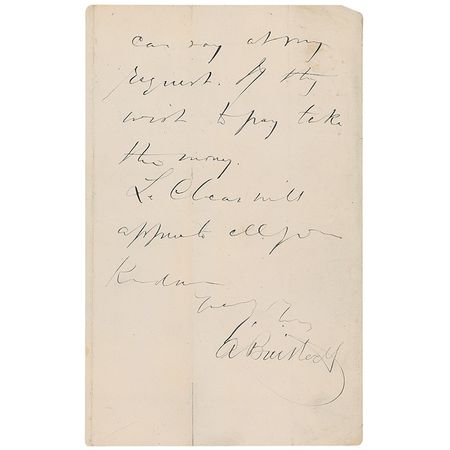 can say at my
request. If they
wish to pay take
the money.
Le Clear will
appreciate all your
Kindness